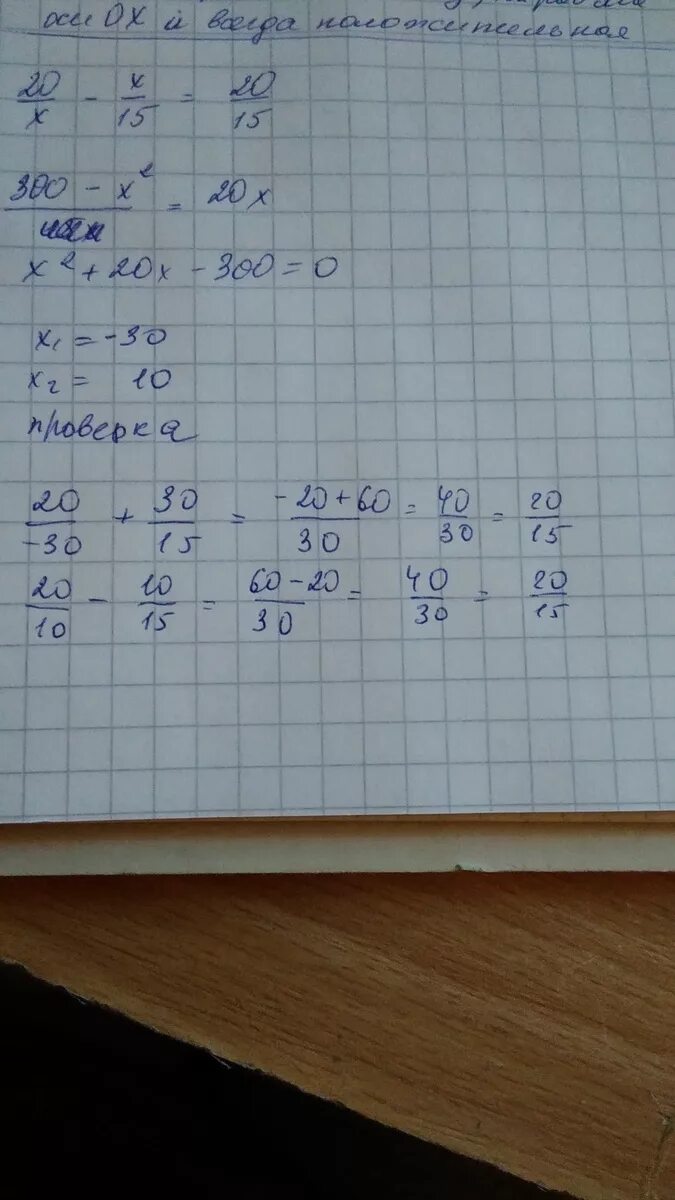 оси OX и всегда положительная
20/x - x/15 = 20/15
300 - x² = 20x
x² + 20x - 300 = 0
x₁ = -30
x₂ = 10
проверка
20/-30 + 30/15 = -20+60/30 = 40/30 = 20/15
20/10 - 10/15 = 60-20/30 = 40/30 = 20/15